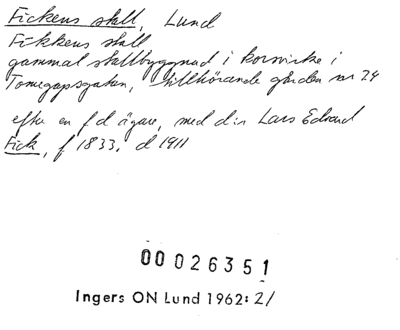 Fickens stall, Lund
Fickens stall
gammal stallbyggnad i korsvirke i
Tomegapsgatan, tillhörande gården nr 24
efter en f d ägare, med dir Lars Edvard
Fick, f 1833, d 1911
00026351
Ingers ON Lund 1962: 21